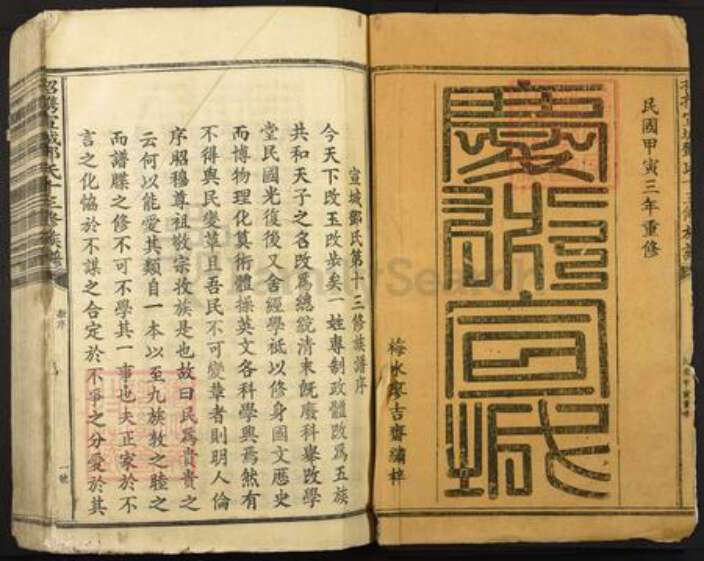 民國甲寅三年重修
慶衍宣城
梅水廖吉齋繡梓
宣城鄧氏第十三修族譜序
今天下改玉改步矣一姓專制政體改爲五族
共和天子之名改爲總統清末既廢科舉改學
堂民國光復後又舍經學祗以修身國文歷史
而博物理化算術體操英文各科學興焉然有
不得與民變革且吾民不可變革者則明人倫
序昭穆尊祖敬宗收族是也故曰民爲貴貴之
云何以能愛其類自一本以至九族教之睦之
而譜牒之修不可不學其一事也夫正家於不
言之化恊於不謀之合定於不爭之分愛於其
宣城鄧氏十三修族譜
序
一號
FamilySearch